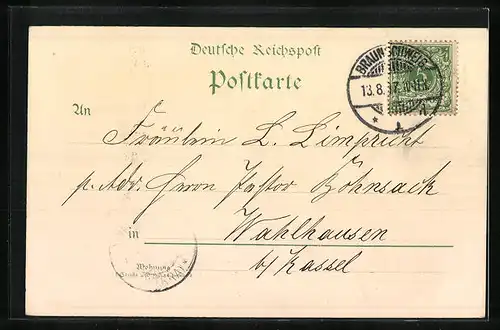 Deutsche Reichspost
Postkarte
BRAUNSCHWEIG
13.8.97
An
Fräulein L. Limpricht
p. Adr. Herrn Pastor Böhnsack
in Wahlhausen
Wohnung
b/ Kassel